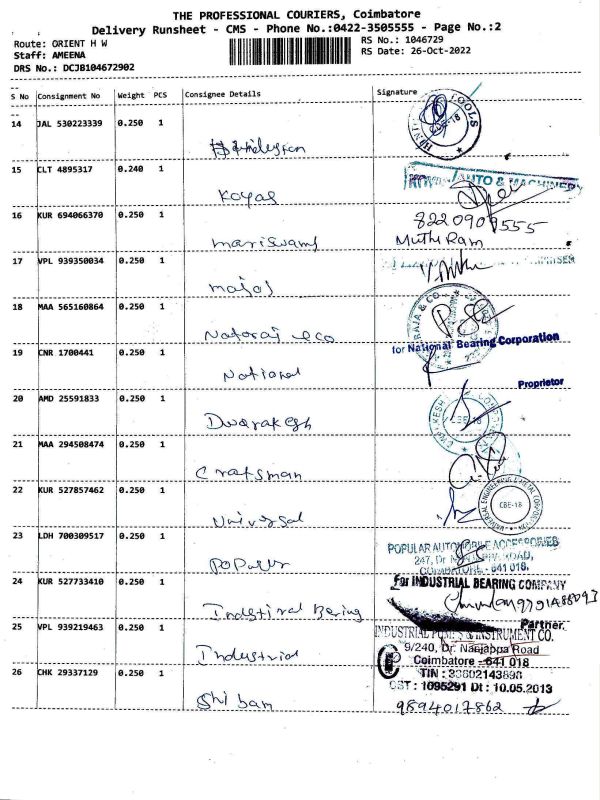 THE PROFESSIONAL COURIERS, Coimbatore
Delivery Runsheet - CMS - Phone No.:0422-3505555 - Page No.:2
Route: ORIENT H W
RS No.: 1046729
Staff: AMEENA
RS Date: 26-Oct-2022
DRS No.: DCJB104672902
S No Consignment No Weight PCS Consignee Details Signature
14 JAL 530223339 0.250 1
TOOLS
CBE-18
Hindustan
15 CLT 4895317 0.240 1
AUTO & MACHINERY
Koyas
16 KUR 694066370 0.250 1
8220909555
Mariswamy Muthu Ram
17 VPL 939350034 0.250 1
Majal
18 MAA 565160864 0.250 1
RAJA & CO
Natoraj &co
for National Bearing Corporation
19 CNR 1700441 0.250 1
National
Proprietor
20 AMD 25591833 0.250 1
CBE-18
Dwarakesh
21 MAA 294508474 0.250 1
Craftsman
22 KUR 527857462 0.250 1
UNIVERSAL ENGINEERING & METAL CORPORATION
CBE-18
Universal
23 LDH 700309517 0.250 1
POPULAR AUTOMOBILE ACCESSORIES
247, Dr. ROAD,
COIMBATORE - 641 018.
Popular
24 KUR 527733410 0.250 1
for INDUSTRIAL BEARING COMPANY
Indestiral Bering
Partner.
25 VPL 939219463 0.250 1
INDUSTRIAL PUMPS & INSTRUMENT CO.
9/240, Dr. Nanjappa Road
Industrial
Coimbatore - 641 018
26 CHK 29337129 0.250 1
TIN : 33602143898
CST : 1095291 Dt : 10.05.2013
Shiban 9894017862